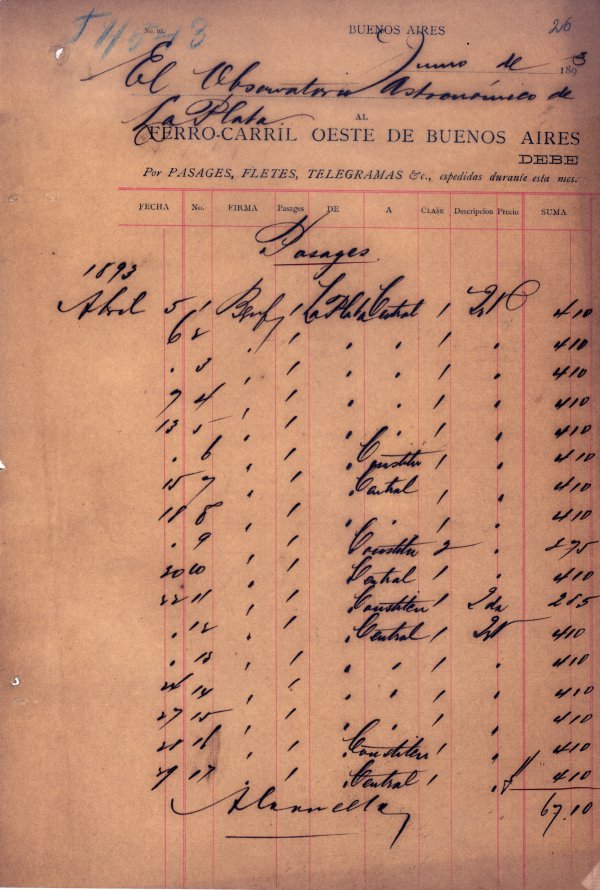 No. 9A. BUENOS AIRES 26
Junio de 1893
El Observatorio Astronómico de
La Plata
AL
FERRO-CARRIL OESTE DE BUENOS AIRES
DEBE
Por PASAGES, FLETES, TELEGRAMAS &c., espedidas durante esta mes.
FECHA No. FIRMA Pasages DE A CLASE Descripcion Precio SUMA
Pasages
1893
Abril 5 1 1 La Plata Central 1 410
6 2 " 1 " " 1 " 410
" 3 " 1 " " 1 " 410
7 4 " 1 " " 1 " 410
13 5 " 1 " " 1 " 410
" 6 " 1 " Constitn 1 " 410
15 7 " 1 " Central 1 " 410
18 8 " 1 " " 1 " 410
" 9 " 1 " Constitn 2 " 275
20 10 " 1 " Central 1 " 410
22 11 " 1 " Constitn 1 Ida 285
" 12 " 1 " Central 1 410
" 13 " 1 " " 1 " 410
" 14 " 1 " " 1 " 410
27 15 " 1 " " 1 " 410
28 16 " 1 " Constitn 1 " 410
" 17 " 1 " Central 1 " 410
A la vuelta 67.10